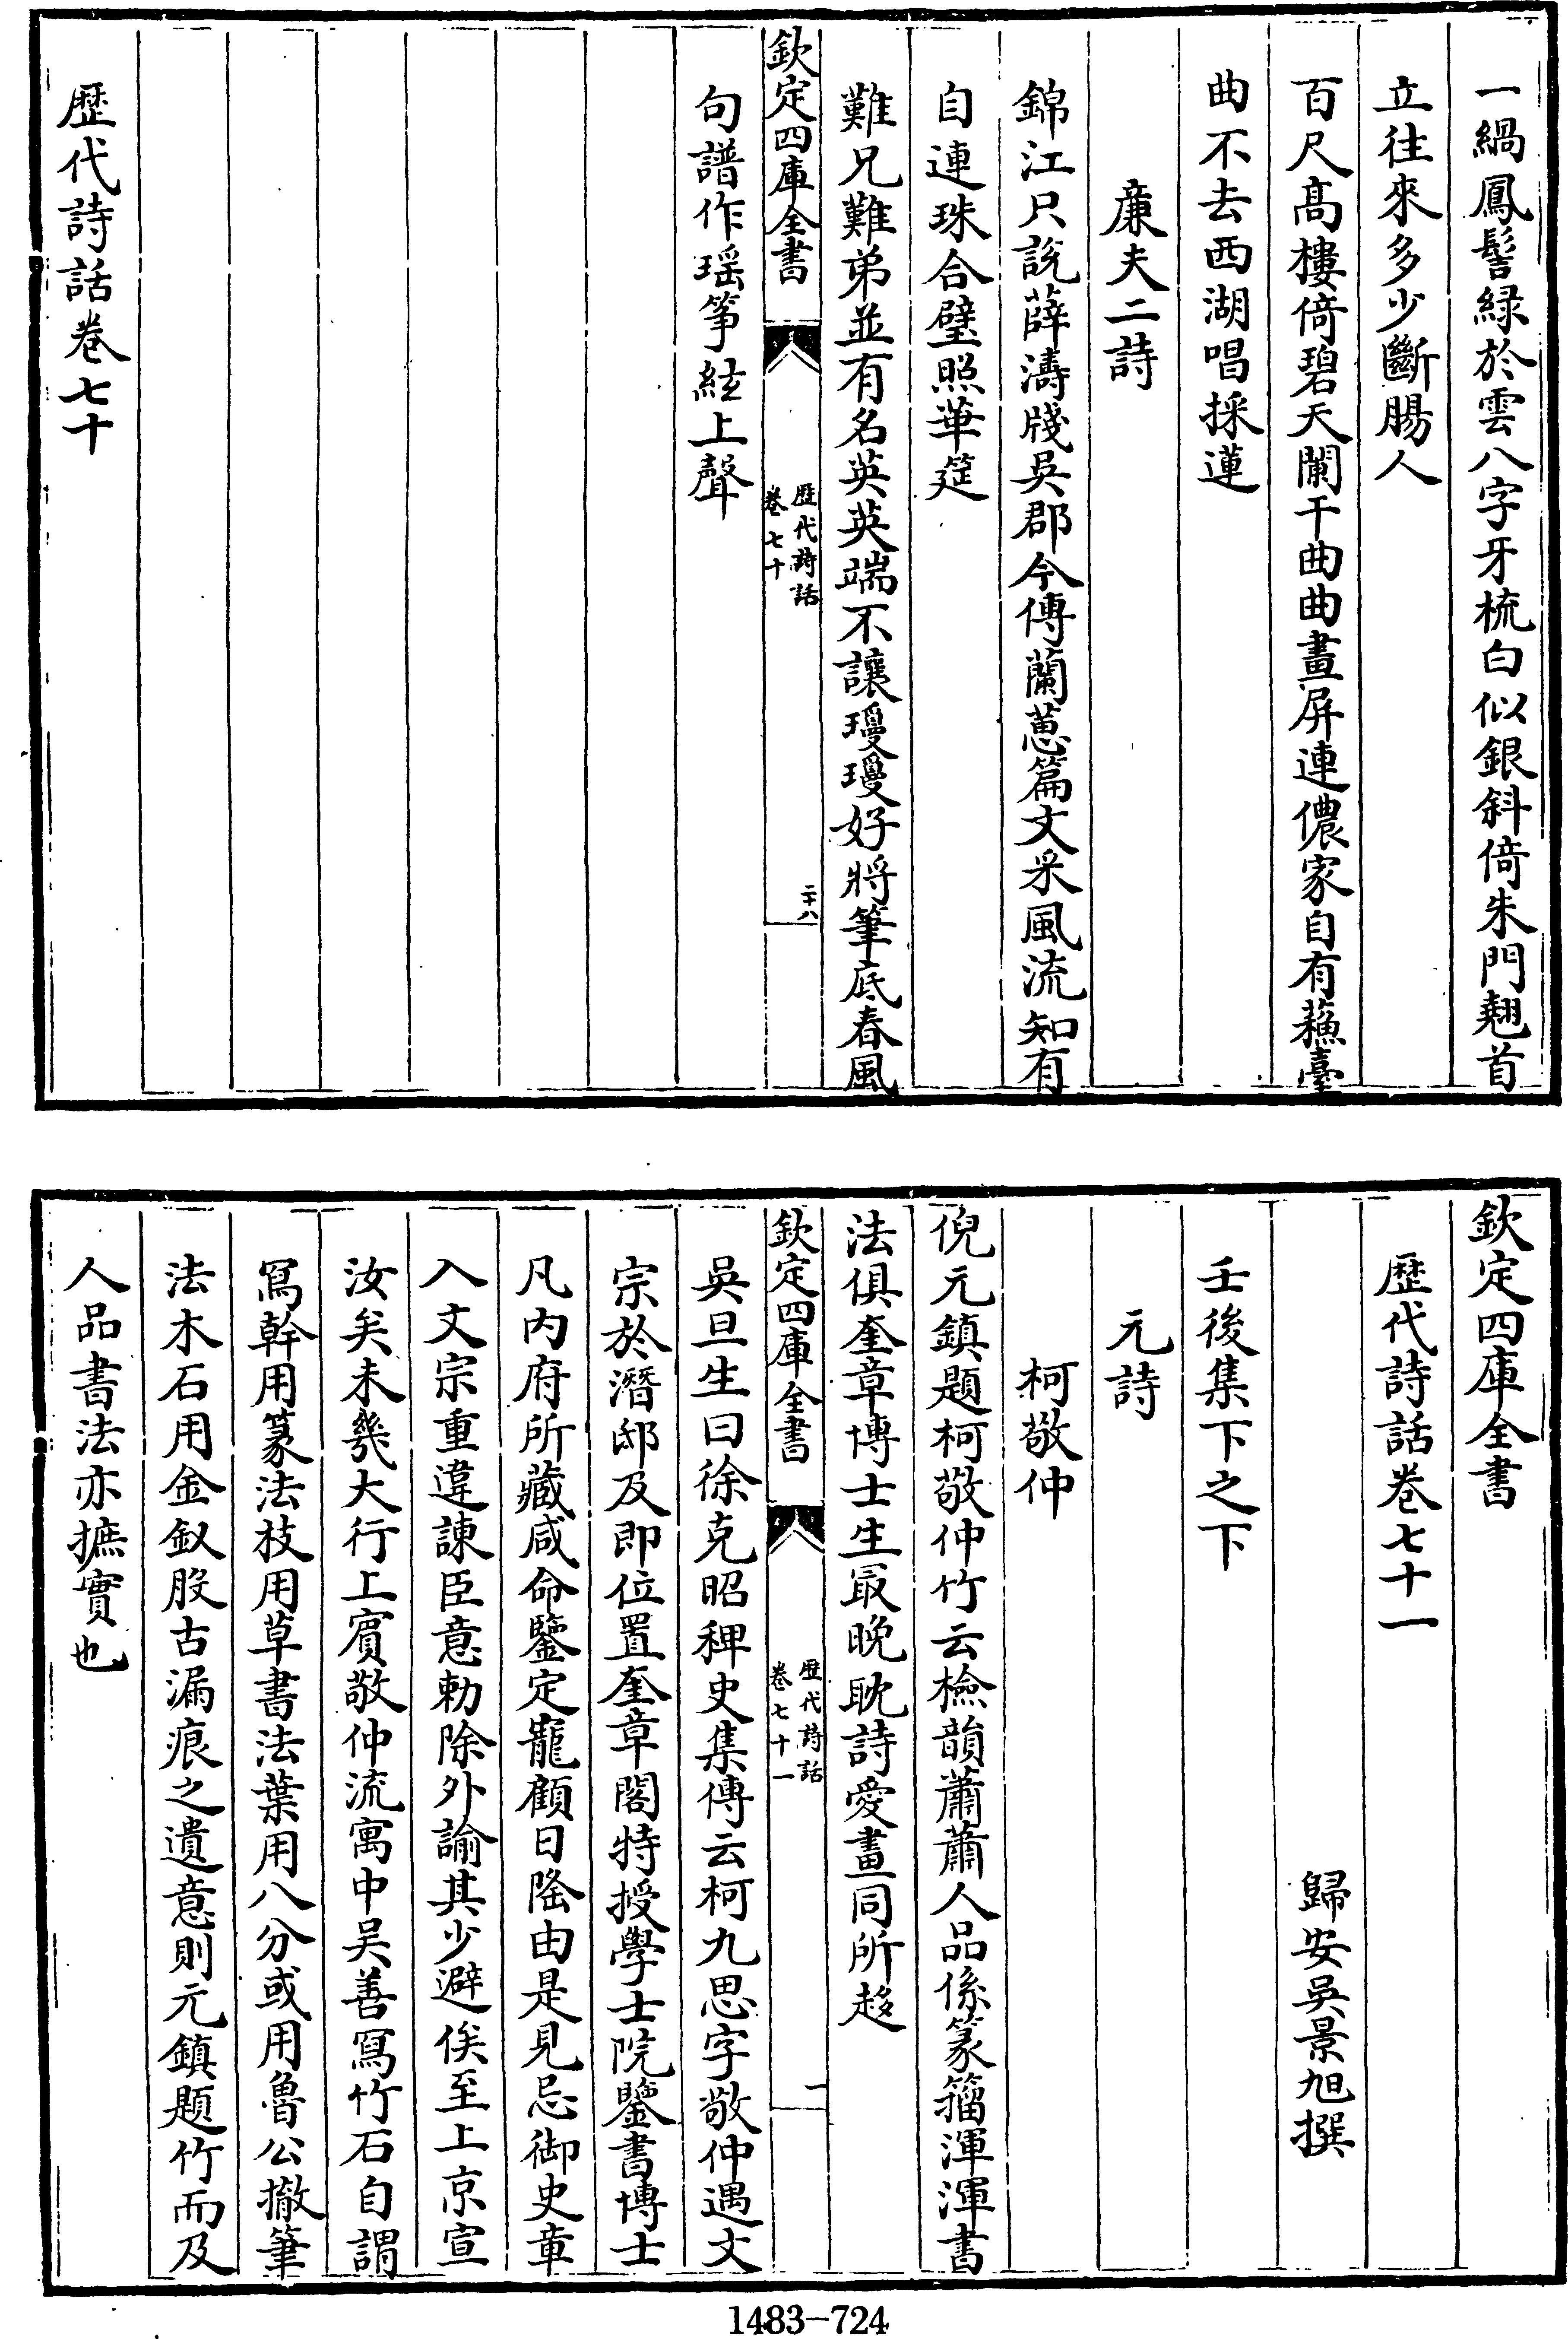 一緺鳳髻緑於雲八字牙梳白似銀斜倚朱門翹首
立往來多少斷腸人
百尺髙樓倚碧天闌干曲曲畫屏連儂家自有蘓臺
曲不去西湖唱採蓮
廉夫二詩
錦江只說薛濤牋吳郡今傳蘭蕙篇文采風流知有
自連珠合璧照華筵
難兄難弟並有名英英端不讓瓊瓊好將筆底春風
欽定四庫全書
歴代詩話
卷七十
二十八
句譜作瑶筝絃上聲
歴代詩話卷七十
欽定四庫全書
歴代詩話卷七十一
歸安吳景旭撰
壬後集下之下
元詩
柯敬仲
倪元鎮題柯敬仲竹云檢韻蕭蕭人品係篆籀渾渾書
法俱奎章博士生最晚耽詩愛畫同所趍
欽定四庫全書
歴代詩話
卷七十一
一
吳旦生曰徐克昭稗史集傳云柯九思字敬仲遇文
宗於潛邸及即位置奎章閣特授學士院鑒書博士
凡内府所藏咸命鑒定寵顧日隆由是見忌御史章
入文宗重違諫臣意勅除外諭其少避俟至上京宣
汝矣未幾大行上賔敬仲流寓中吴善冩竹石自謂
冩幹用篆法枝用草書法葉用八分或用魯公撇筆
法木石用金釵股古漏痕之遺意則元鎮題竹而及
人品書法亦摭實也
1483-724